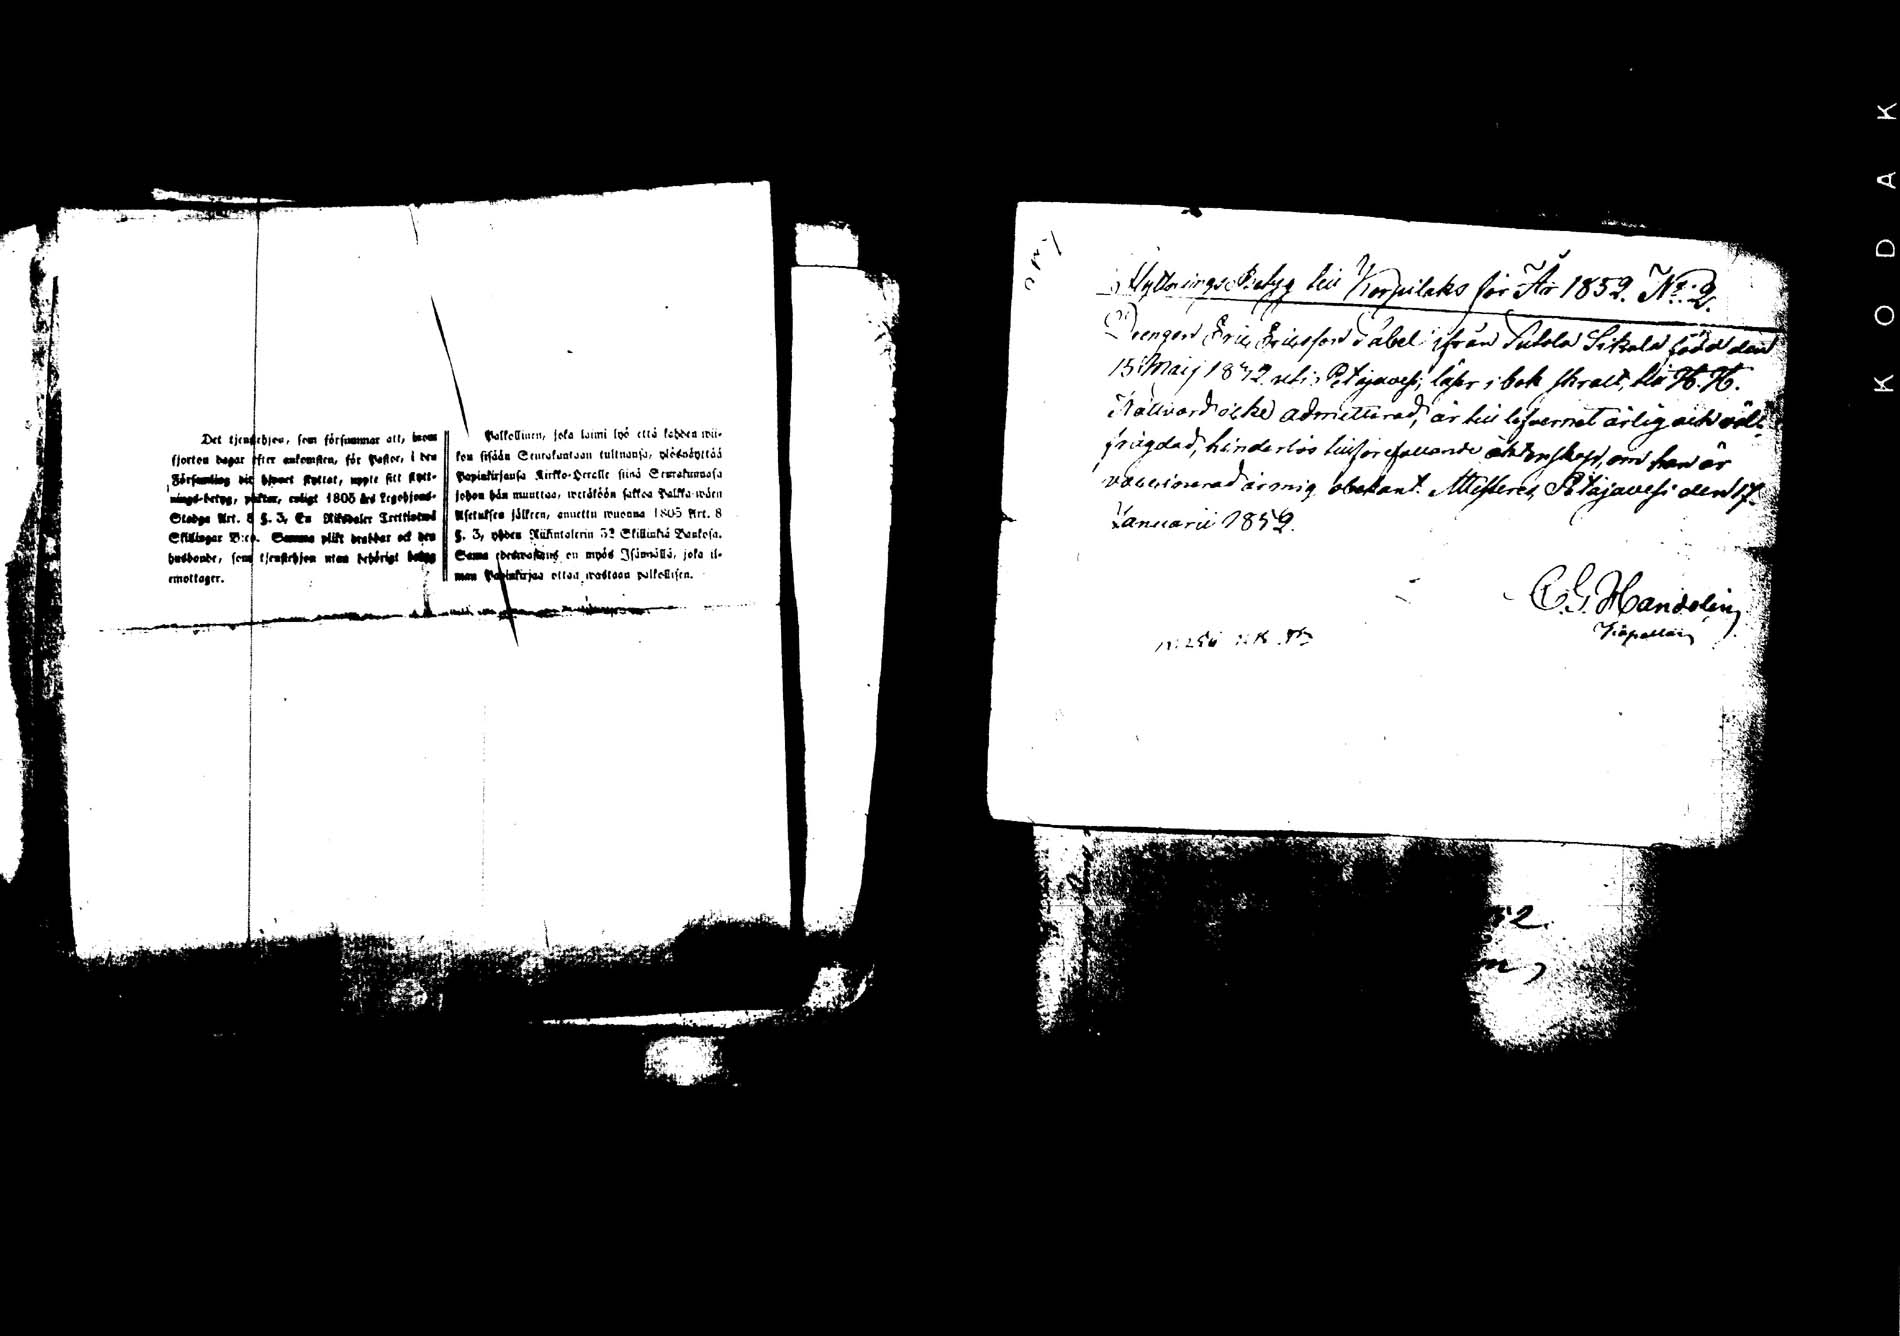 Det tjenstehjon, som försummar att, inom
fjorton dagar efter ankomsten, för Pastor, i den
Församling dit hjonet flyttat, uppte sitt flytt-
nings-betyg, pliktar, enligt 1805 års Legohjons-
Stadga Art. 8 §. 3, En Riksdaler Trettiotwå
Skillingar B:co. Samma plikt drabbar ock den
husbonde, som tjenstehjon utan behörigt betyg
emottager.
Palkollinen, joka laimi lyö että kahden wii-
kon sisään Seurakuntaan tultuansa, ylösnäyttää
Papinkirjansa Kirkko-Herralle siinä Seurakunnasa
johon hän muuttaa, wetäköön sakkoa Palkka-wäen
Asetuksen jälkeen, annettu wuonna 1805 Art. 8
§. 3, yhden Riikintalerin 32 Skillinkiä Bankosa.
Sama edeswastaus on myös Isännällä, joka il-
man Papinkirjaa ottaa wastaan palkollisen.
Flyttnings Betyg till Korpilaks för År 1852. No. 2.
Drengen Eric Ericsson Tabel ifrån Putola Sikala född den
15 Maij 1842 uti Petäjävesi, läser i bok skralt, till H. H.
Nattvard icke admitterad, är till lefvernet ärlig och väl
frägdad, hinderlös till förefallande äktenskap, om han är
vaccinerad är mig obekant. Attesteres, Petäjävesi den 17
Januarii 1852.
C. G. Handolin
Kapellan
52.
KODAK